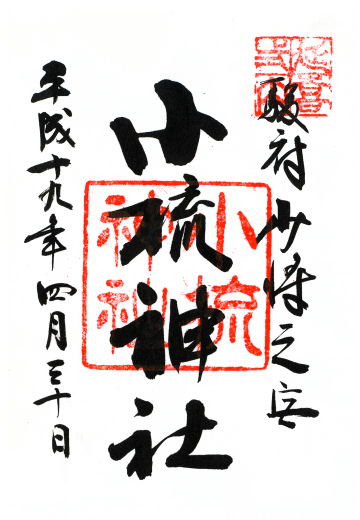 駿府 少将之宮
小梳神社
小梳
神社
平成十九年四月三十日